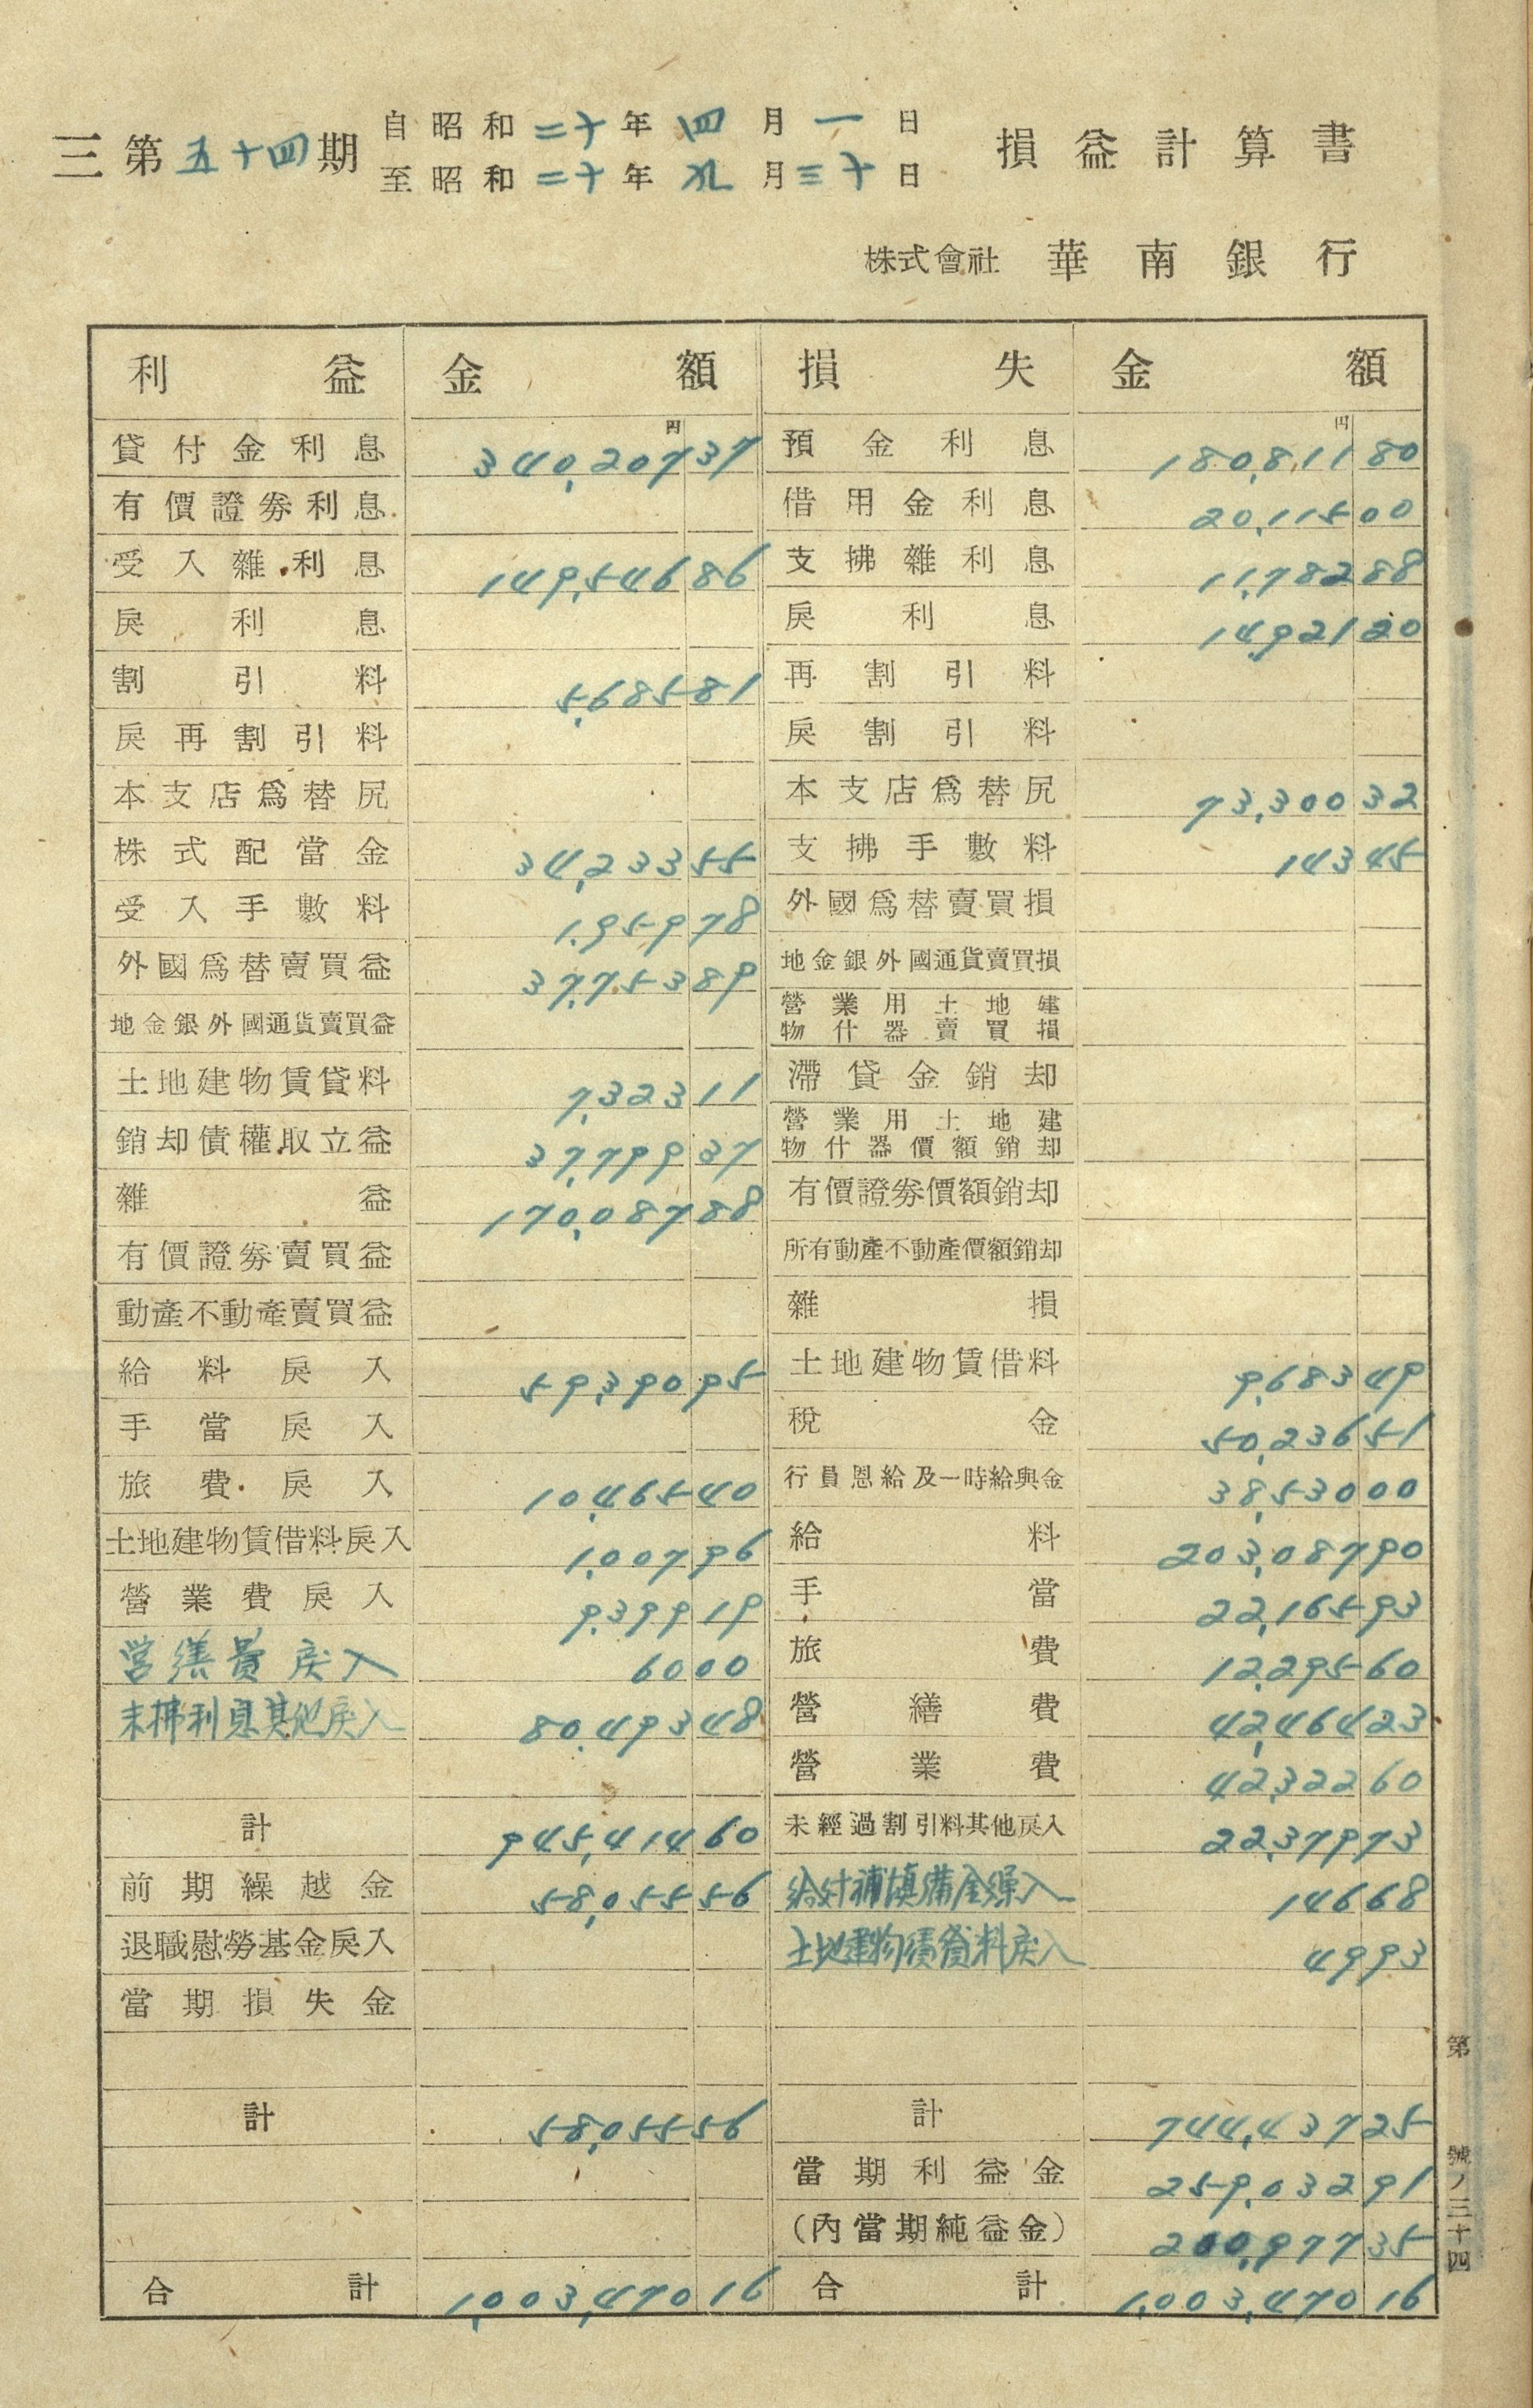 三 第五十四期 自昭和二十年四月一日 損益計算書
至昭和二十年九月三十日
株式會社 華南銀行
利益 金額 損失 金額
円 円
貸付金利息 340,207 37 預金利息 180,811 80
有價證券利息 借用金利息 20,115 00
受入雜利息 149,546 86 支拂雜利息 11,782 88
戾利息 戾利息 14,921 20
割引料 5,685 81 再割引料
戾再割引料 戾割引料
本支店爲替尻 本支店爲替尻 73,300 32
株式配當金 34,233 55 支拂手數料 143 45
受入手數料 1,959 78 外國爲替賣買損
外國爲替賣買益 37,753 89 地金銀外國通貨賣買損
地金銀外國通貨賣買益 營業用土地建物什器賣買損
土地建物賃貸料 7,323 11 滯貸金銷却
銷却債權取立益 37,799 37 營業用土地建物什器價額銷却
雜益 170,087 88 有價證券價額銷却
有價證券賣買益 所有動產不動產價額銷却
動產不動產賣買益 雜損
給料戾入 59,390 95 土地建物賃借料 9,683 49
手當戾入 稅金 50,236 51
旅費戾入 10,465 40 行員恩給及一時給與金 38,530 00
土地建物賃借料戾入 1,007 96 給料 203,087 90
營業費戾入 9,399 19 手當 22,165 93
営繕費戻入 60 00 旅費 12,295 60
未拂利息其他戻入 80,493 48 營繕費 42,464 23
營業費 42,322 60
計 945,414 60 未經過割引料其他戾入 22,379 73
前期繰越金 58,055 56 給対補填備金繰入 146 68
退職慰勞基金戾入 土地建物賃貸料戻入 49 93
當期損失金
計 58,055 56 計 744,437 25
當期利益金 259,032 91
(內當期純益金) 200,977 35
合計 1,003,470 16 合計 1,003,470 16
第 號ノ三十四